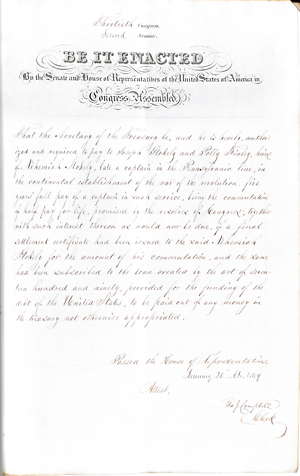 Thirtieth Congress
Second Session
BE IT ENACTED
By the Senate and House of Representatives of the United States of America in
Congress Assembled
That the Secretary of the Treasury be, and he is hereby, author-
ized and required to pay to Stokely and Polly heirs
of Nehemiah Stokely, late a captain in the Pennsylvania line, in
the continental establishment of the war of the revolution, five
years full pay of a captain in such service, being the commutation
of half pay for life, promised by the resolves of Congress; together
with such interest thereon as would now be due, if a final
settlement certificate had been issued to the said Nehemiah
Stokely for the amount of his commutation, and the same
had been subscribed to the loan created by the act of seven-
teen hundred and ninety, provided for the funding of the
debt of the United States, to be paid out of any money in
the treasury not otherwise appropriated.
Passed the House of Representatives
January 26th 1849
Attest.
Tho J Campbell
Clerk